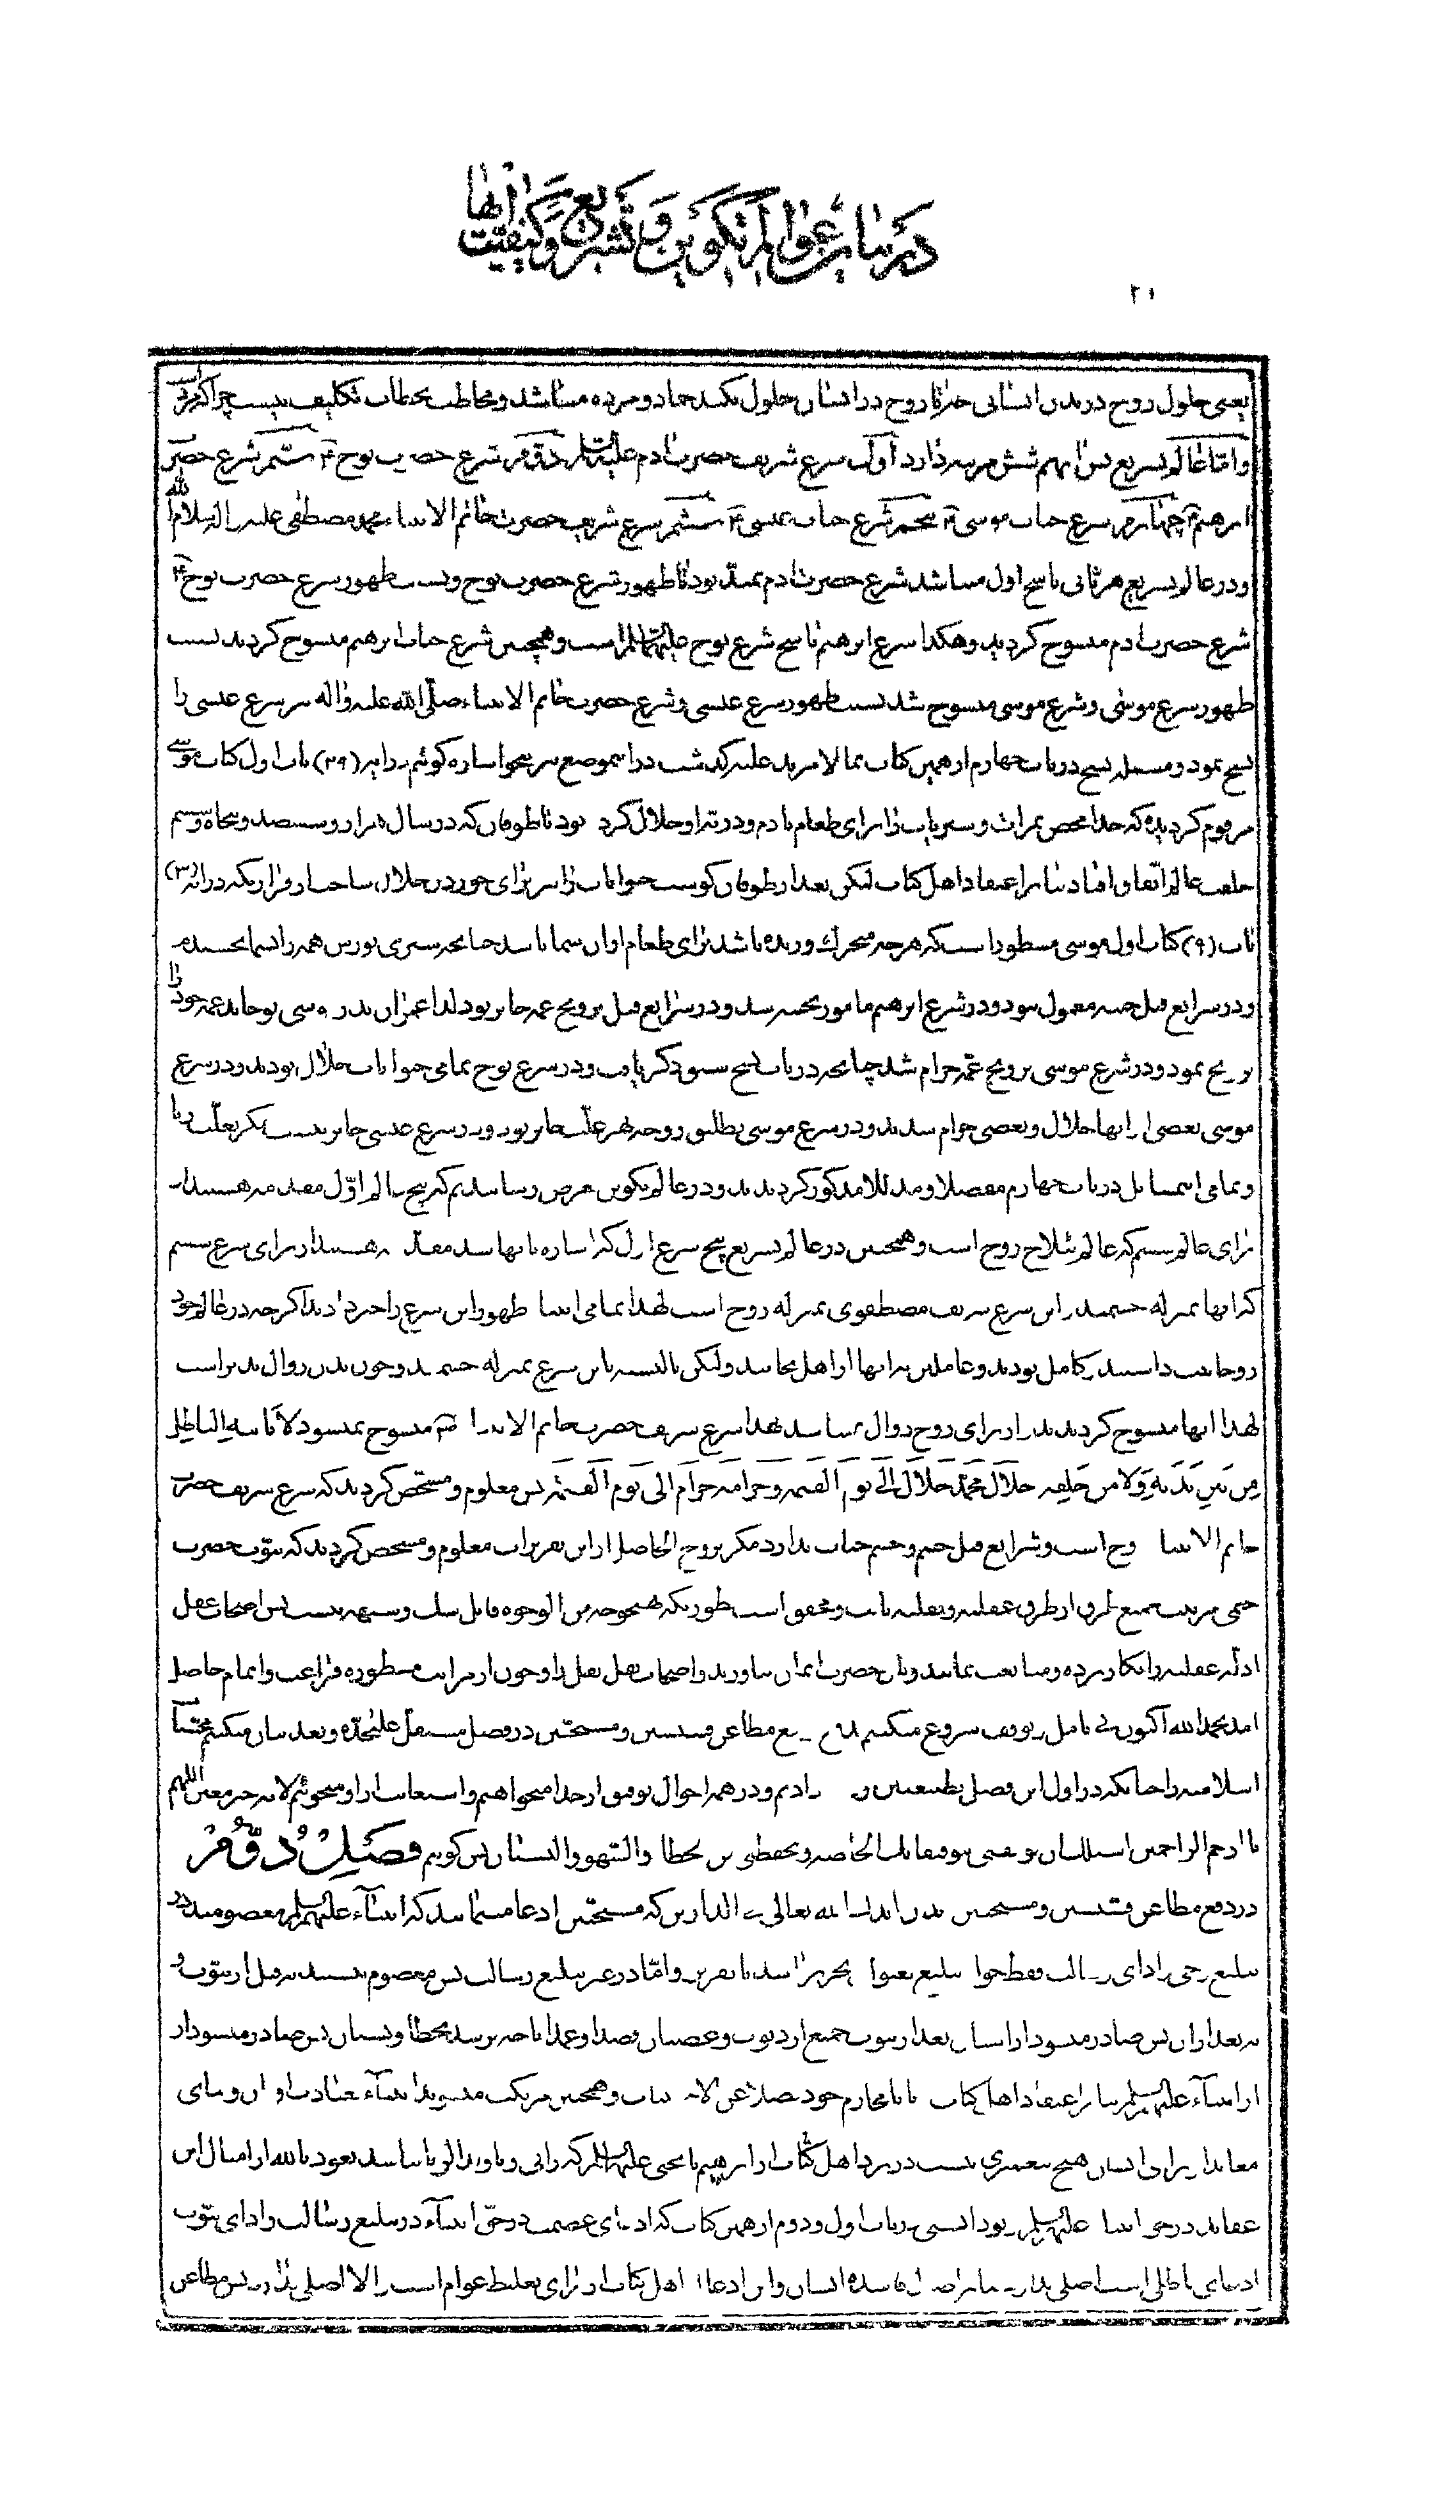 در بیان عوالم تکوین و تشریع و کیفیت آنها
۲۱
یعنی حلول روح در بدن انسانی خبر تا روح در انسان حلول نکند جماد و مرده میباشد و مخاطب بخطاب تکلیف نیست چرا که مرده است
و امّا عالم تشریع پس آنهم شش مرتبه دارد اوّل شرع شریف حضرت آدم علیه السلام دوّم شرع حضرت نوح ۴ سیّم شرع حضرت
ابرهیم ۴ چهارم شرع جناب موسی ۴ پنجم شرع جناب عیسی ۴ ششم شرع شریف حضرت خاتم الانبیاء محمد مصطفی علیه السلام الله
و در عالم تشریع هر ثانی ناسخ اول میباشد شرع حضرت آدم ممتدّ بود تا ظهور شرع حضرت نوح و بسبب ظهور شرع حضرت نوح ۴
شرع حضرت آدم منسوخ گردید و هکذا شرع ابرهیم ناسخ شرع نوح علیهما السلام است و همچنین شرع جناب ابرهیم منسوخ گردید بسبب
ظهور شرع موسی و شرع موسی منسوخ شد بسبب ظهور شرع عیسی و شرع حضرت خاتم الانبیاء صلّی الله علیه و آله نیز شرع عیسی را
نسخ نمود و مسئله نسخ در باب چهارم از همین کتاب بما لا مزید علیه گذشت در اینموضع نیز بنحو اشاره گوئیم در آیه (۲۹) باب اول کتاب موسی
مرقوم گردیده که خدا محض نمرات و سبزیات را برای طعام بآدم و ذریّه او حلال کرده بود تا طوفان که در سال هزار و ششصد و پنجاه و ششم
خلقت عالم اتّفاق افتاد بنا بر اعتقاد اهل کتاب لیکن بعد از طوفان گوشت حیوانات را نیز برای خوردن حلال ساخت از قراریکه در آیه (۳)
باب (۹) کتاب اول موسی مسطور است که هر چه متحرک و زنده باشد برای طعام از آن شما باشد چنانچه سبزی نورس همه را بشما بخشیدم
و در شرایع قبل ختنه معمول نبود و در شرع ابرهیم مامور بختنه شدند و در شرایع قبل تزویج عمه جایز بود لذا عمران پدر موسی یوخابد عمه خود را
تزویج نمود و در شرع موسی تزویج عمّه حرام شد چنانچه در باب نسخ سبق ذکر یافت و در شرع نوح تمامی حیوانات حلال بودند و در شرع
موسی بعضی از آنها حلال و بعضی حرام شدند و در شرع موسی تطلیق زوجه بهر علّت جایز بود و در شرع عیسی جایز نیست مگر بعلّت زنا
و تمامی اینمسائل در باب چهارم مفصلا و مدللا مذکور گردیدند و در عالم تکوین عرض رسانیدیم که پنج عالم اوّل مقدمه هستند از
برای عالم ششم که عالم ایلاج روح است و همچنین در عالم تشریع پنج شرع اول که اشاره بآنها شد مقدّمه هستند از برای شرع ششم
که آنها بمنزله جسمند و این شرع شریف مصطفوی بمنزله روح است لهذا تمامی انبیا ظهور این شرع را خبر دادند اگر چه در عالم خود
روحانیت داشتند کامل بودند و عاملین به آنها از اهل نجاتند ولیکن بالنسبه باین شرع بمنزله جسمند و چون بدن زوال پذیر است
لهذا آنها منسوخ گردیدند و از برای روح زوال نمیباشد لهذا شرع شریف حضرت خاتم الانبیا منسوخ نمیشود لا یأتیه الباطل
مِن بَین یَدَیهِ وَلا مِن خَلفِه حلال محمّد حلال الی یوم القیمه و حرامه حرام الی یوم القیمه پس معلوم و مشخص گردید که شرع شریف حضرت
خاتم الانبیا روح است و شرایع قبل جسم و جسم حیات ندارد مگر بروح الحاصل از این تقریرات معلوم و مشخص گردید که نبوّت حضرت
ختمی مرتبت بجمیع طرق از طرق عقلیه و نقلیه ثابت و محقق است بطوریکه بهیچوجه من الوجوه قابل شک و شبهه نیست پس اصحاب عقل
ادلّه عقلیه را بکار برده و متابعت نمایند و بآن حضرت ایمان بیاورند و اصحاب نقل نقل را و چون از مراتب مسطوره فراغت و اتمام حاصل
آمد بحمد الله اکنون بی تامل و توقف شروع میکنیم مطاعن قسیسین و مسیحیّین در فصل مستقل علیحدّه و بعد بیان میکنیم
اسلامیه را چنانکه در اول این فصل و در همه احوال توفیق از خدا میخواهیم و استعانت از او میجوئیم لانه خیر معین اللهم
یا ارحم الراحمین اسئلک ان توفقنی بتوفیقاتک الخاصه و تحفظنی من الخطا والسهو والنسیان پس گویم فصل دوّم
در دفع مطاعن قسیسین و مسیحیین بدان ایدک الله تعالی فی الدارین که مسیحیّین ادعا مینمایند که انبیآء علیهم السلام معصومند در
تبلیغ وحی و ادای رسالت فقط خواه تبلیغ تحریرا باشد یا تقریر و امّا در غیر تبلیغ رسالت پس معصوم نیستند نه قبل از نبوّت و
نه بعد از آن پس صادر میشود از ایشان بعد از نبوت جمیع از ذنوب و عصیان قصدا و عمدا تا چه برسد بخطا و نسیان پس صادر میشود از
از انبیآء علیهم السلام بنا بر اعتقاد اهل کتاب زنا با محارم خود فضلا عن الاجنبیات و همچنین مرتکب میشوند انبیآء عبادت اوثان و بنای
معابد از برای ایشان هیچ پیغمبری نیست در نزد اهل کتاب از ابرهیم تا یحیی علیهم السلام که زانی و یا ولد الزنا نباشد نعوذ بالله از امثال این
عقاید در حق انبیا علیهم السلام و تو دانستی در باب اول و دوم از همین کتاب که ادعای عصمت در حقّ انبیآء در تبلیغ رسالت و ادای نبوّت
ادعای باطلی است اصلی ندارد بنا بر اصول فاسده ایشان و این ادعا از اهل کتاب از برای تغلیط عوام است و الا اصلی ندارد پس مطاعن